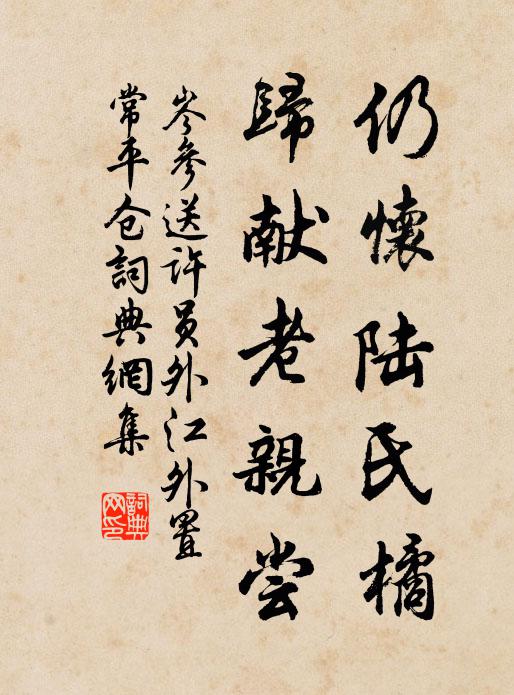 仍懷陆氏橘
歸献老親尝
岑參送許员外江外置
常平仓詞典網集
詞典网印